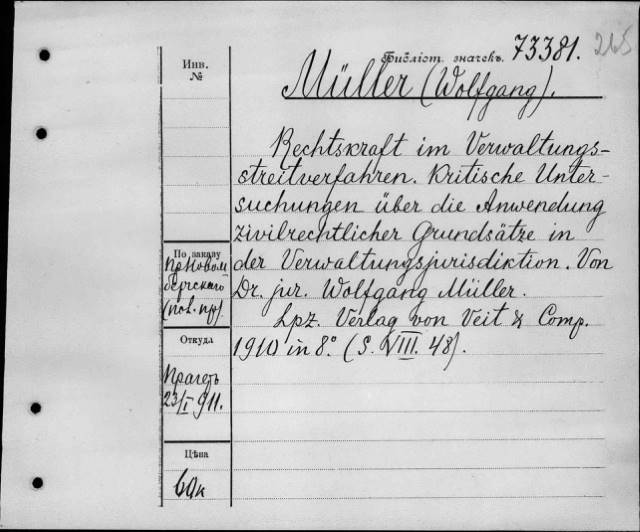 Инв.
№
Библіот. значекъ. 73381. 265
Müller (Wolfgang).
Rechtskraft im Verwaltungs-
streitverfahren. Kritische Unter-
suchungen über die Anwendung
zivilrechtlicher Grundsätze in
der Verwaltungsjurisdiktion. Von
Dr. jur. Wolfgang Müller.
Lpz. Verlag von Veit & Comp.
1910 in 8.° (S. VIII. 48).
По заказу
Откуда
23/I 911.
Цѣна
60к